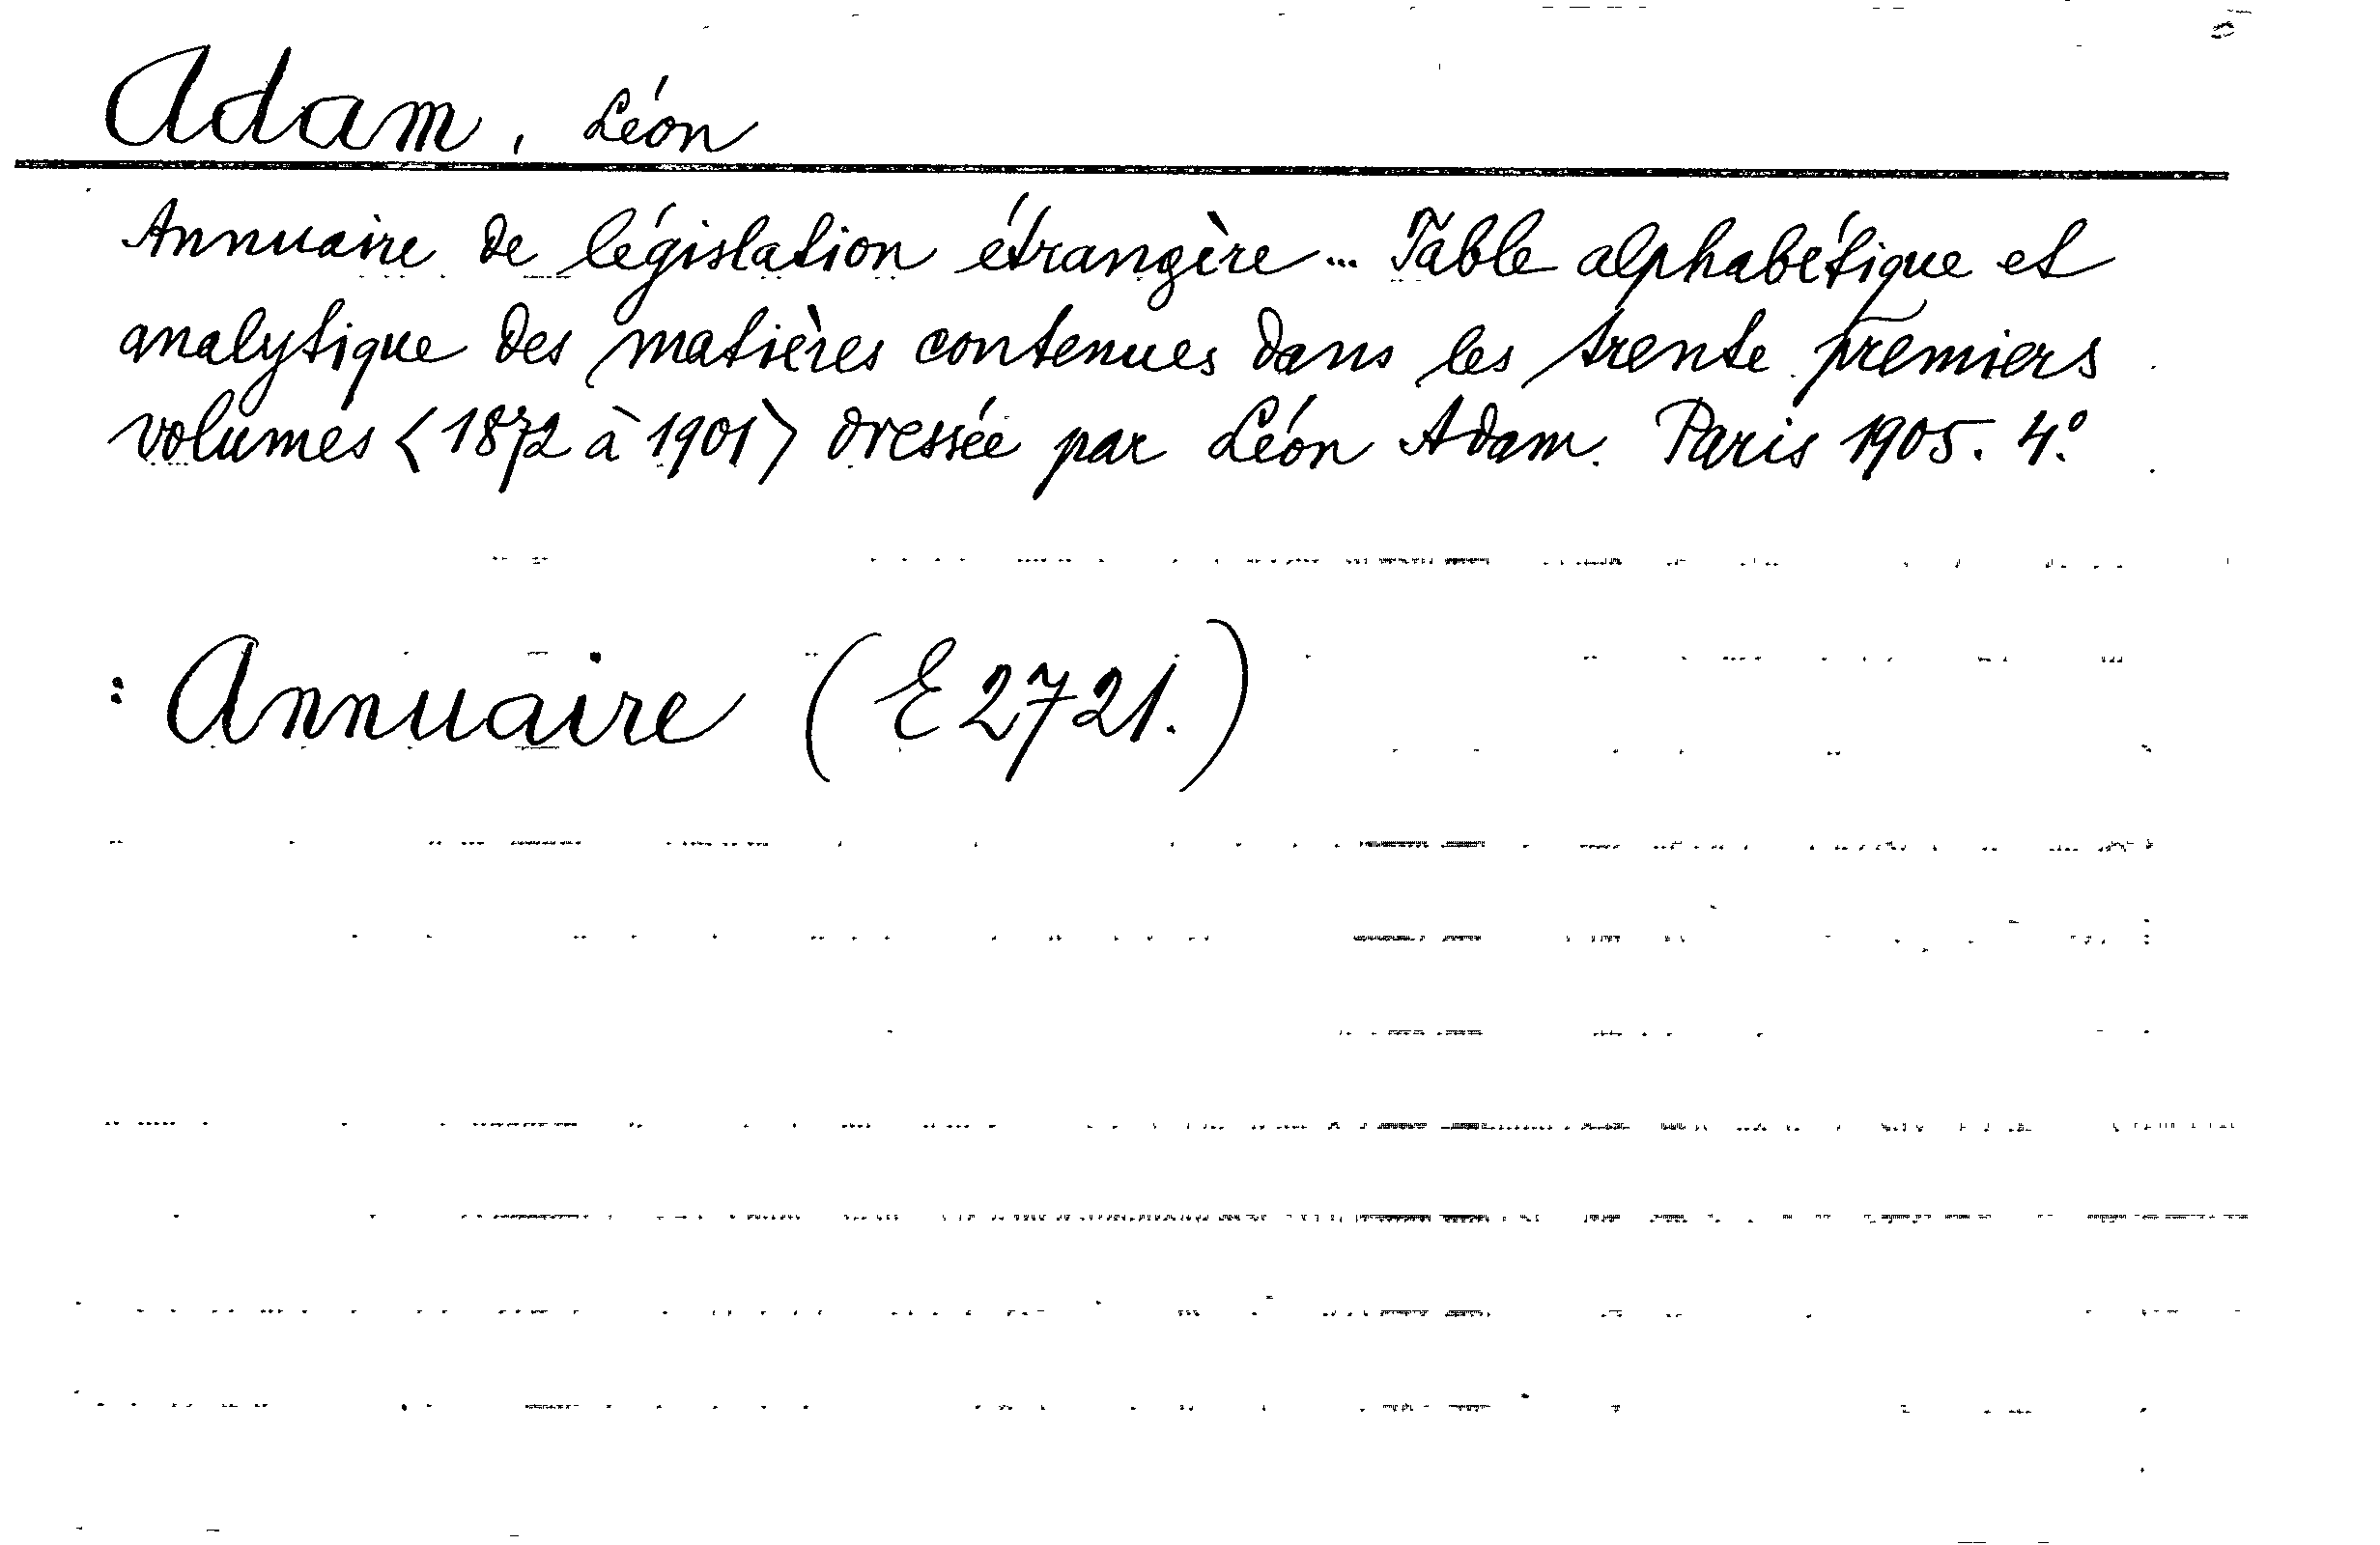 Adam, Léon
Annuaire de législation étrangère... Table alphabétique et
analytique des matières contenues dans les trente premiers
volumes <1872 à 1901> dressée par Léon Adam. Paris 1905. 4º.
: Annuaire (E 2721.)